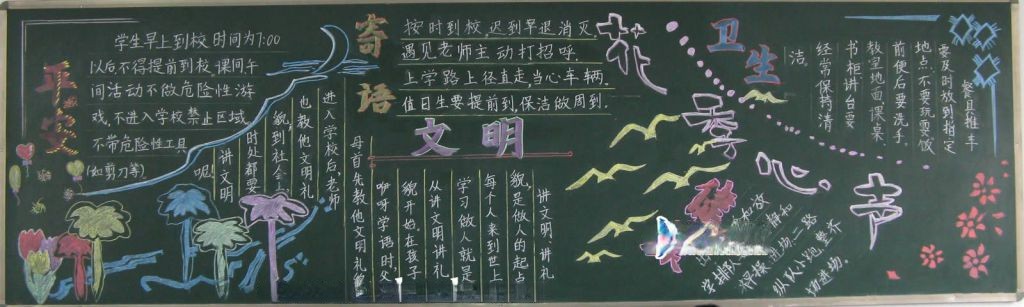 平安
学生早上到校时间为7:00
以后不得提前到校.课间午
间活动不做危险性游
戏,不进入学校禁止区域
不带危险性工具
(如剪刀等)
寄语
按时到校,迟到早退消灭
遇见老师主动打招呼.
上学路上径直走,当心车辆.
值日生要提前到,保洁做周到.
文明
讲文明、讲礼
貌,是做人的起点
每个人来到世上
学习做人就是
从讲文明讲礼
貌开始.在孩子
咿呀学语时,父
母首先教他文明礼貌
进入学校后,老师
也教他文明礼
貌,到社会上
时处都要
讲文明
呢!
花季心声
卫生
餐具推车
要及时放到指定
地点.不要玩耍.饭
前便后要洗手.
教室地面课桌、
书柜讲台要
经常保持清
洁.
静和
学排队
二路
纵队小跑整齐
场进场.